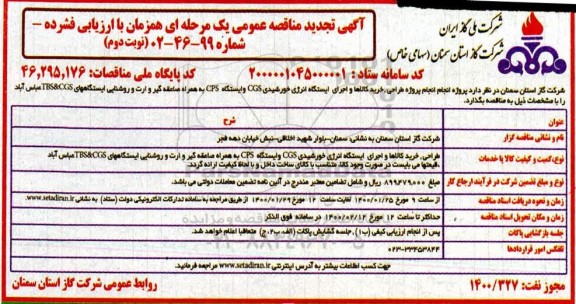 شرکت ملی گاز ایران
شرکت گاز استان سمنان (سهامی خاص)
آگهی تجدید مناقصه عمومی یک مرحله ای همزمان با ارزیابی فشرده –
شماره ۹۹-۴۶-۰۲ (نوبت دوم)
کد سامانه ستاد : ۲۰۰۰۰۰۱۰۴۵۰۰۰۰۰۱
کد پایگاه ملی مناقصات: ۴۶,۲۹۵,۱۷۶
شرکت گاز استان سمنان در نظر دارد پروژه انجام انجام پروژه طراحی ،خرید کالاها و اجرای ایستگاه انرژی خورشیدی CGS وایستگاه CPS به همراه صاعقه گیر و ارت و روشنایی ایستگاههای TBS&CGS عباس آباد
را با مشخصات ذیل به مناقصه بگذارد.
عنوان
شرح
نام و نشانی مناقصه گزار
شرکت گاز استان سمنان به نشانی: سمنان–بلوار شهید اخلاقی–نبش خیابان دهه فجر
نوع، کمیت و کیفیت کالا یا خدمات
طراحی، خرید کالاها و اجرای ایستگاه انرژی خورشیدی CGS وایستگاه CPS به همراه صاعقه گیر و ارت و روشنایی ایستگاههای TBS&CGS عباس آباد
،قیمتها می بایست در صورت وجود کالا، متناسب با کالای ساخت داخل و با لحاظ کیفیت ارائه گردد.
نوع و مبلغ تضمین شرکت در فرآیند ارجاع کار
۸۹۹۴۷۹۰۰۰ ریال و شامل تضامین معتبر مندرج در آئین نامه تضمین معاملات دولتی می باشد.
زمان و نحوه دریافت اسناد مناقصه
از ساعت ۹ مورخ ۱۴۰۰/۰۱/۲۵ لغایت ساعت ۱۲ مورخ ۱۴۰۰/۰۱/۲۹ از طریق مراجعه به سامانه تدارکات الکترونیکی دولت (ستاد) به نشانی www.setadiran.ir
زمان و مکان تحویل اسناد مناقصه
حداکثر تا ساعت ۱۲ مورخ ۱۴۰۰/۰۲/۱۲ در سامانه فوق الذکر
جلسه بازگشایی پاکات
پس از انجام ارزیابی کیفی (ب۱)، جلسه گشایش پاکات (الف،ب۲،ج) متعاقبا اعلام خواهد شد.
تلفکس امور قراردادها
۰۲۳-۳۳۴۵۳۸۴۴
جهت کسب اطلاعات بیشتر به آدرس اینترنتی www.setadiran.ir مراجعه فرمائید.
مجوز نفت: ۱۴۰۰/۳۲۷
روابط عمومی شرکت گاز استان سمنان